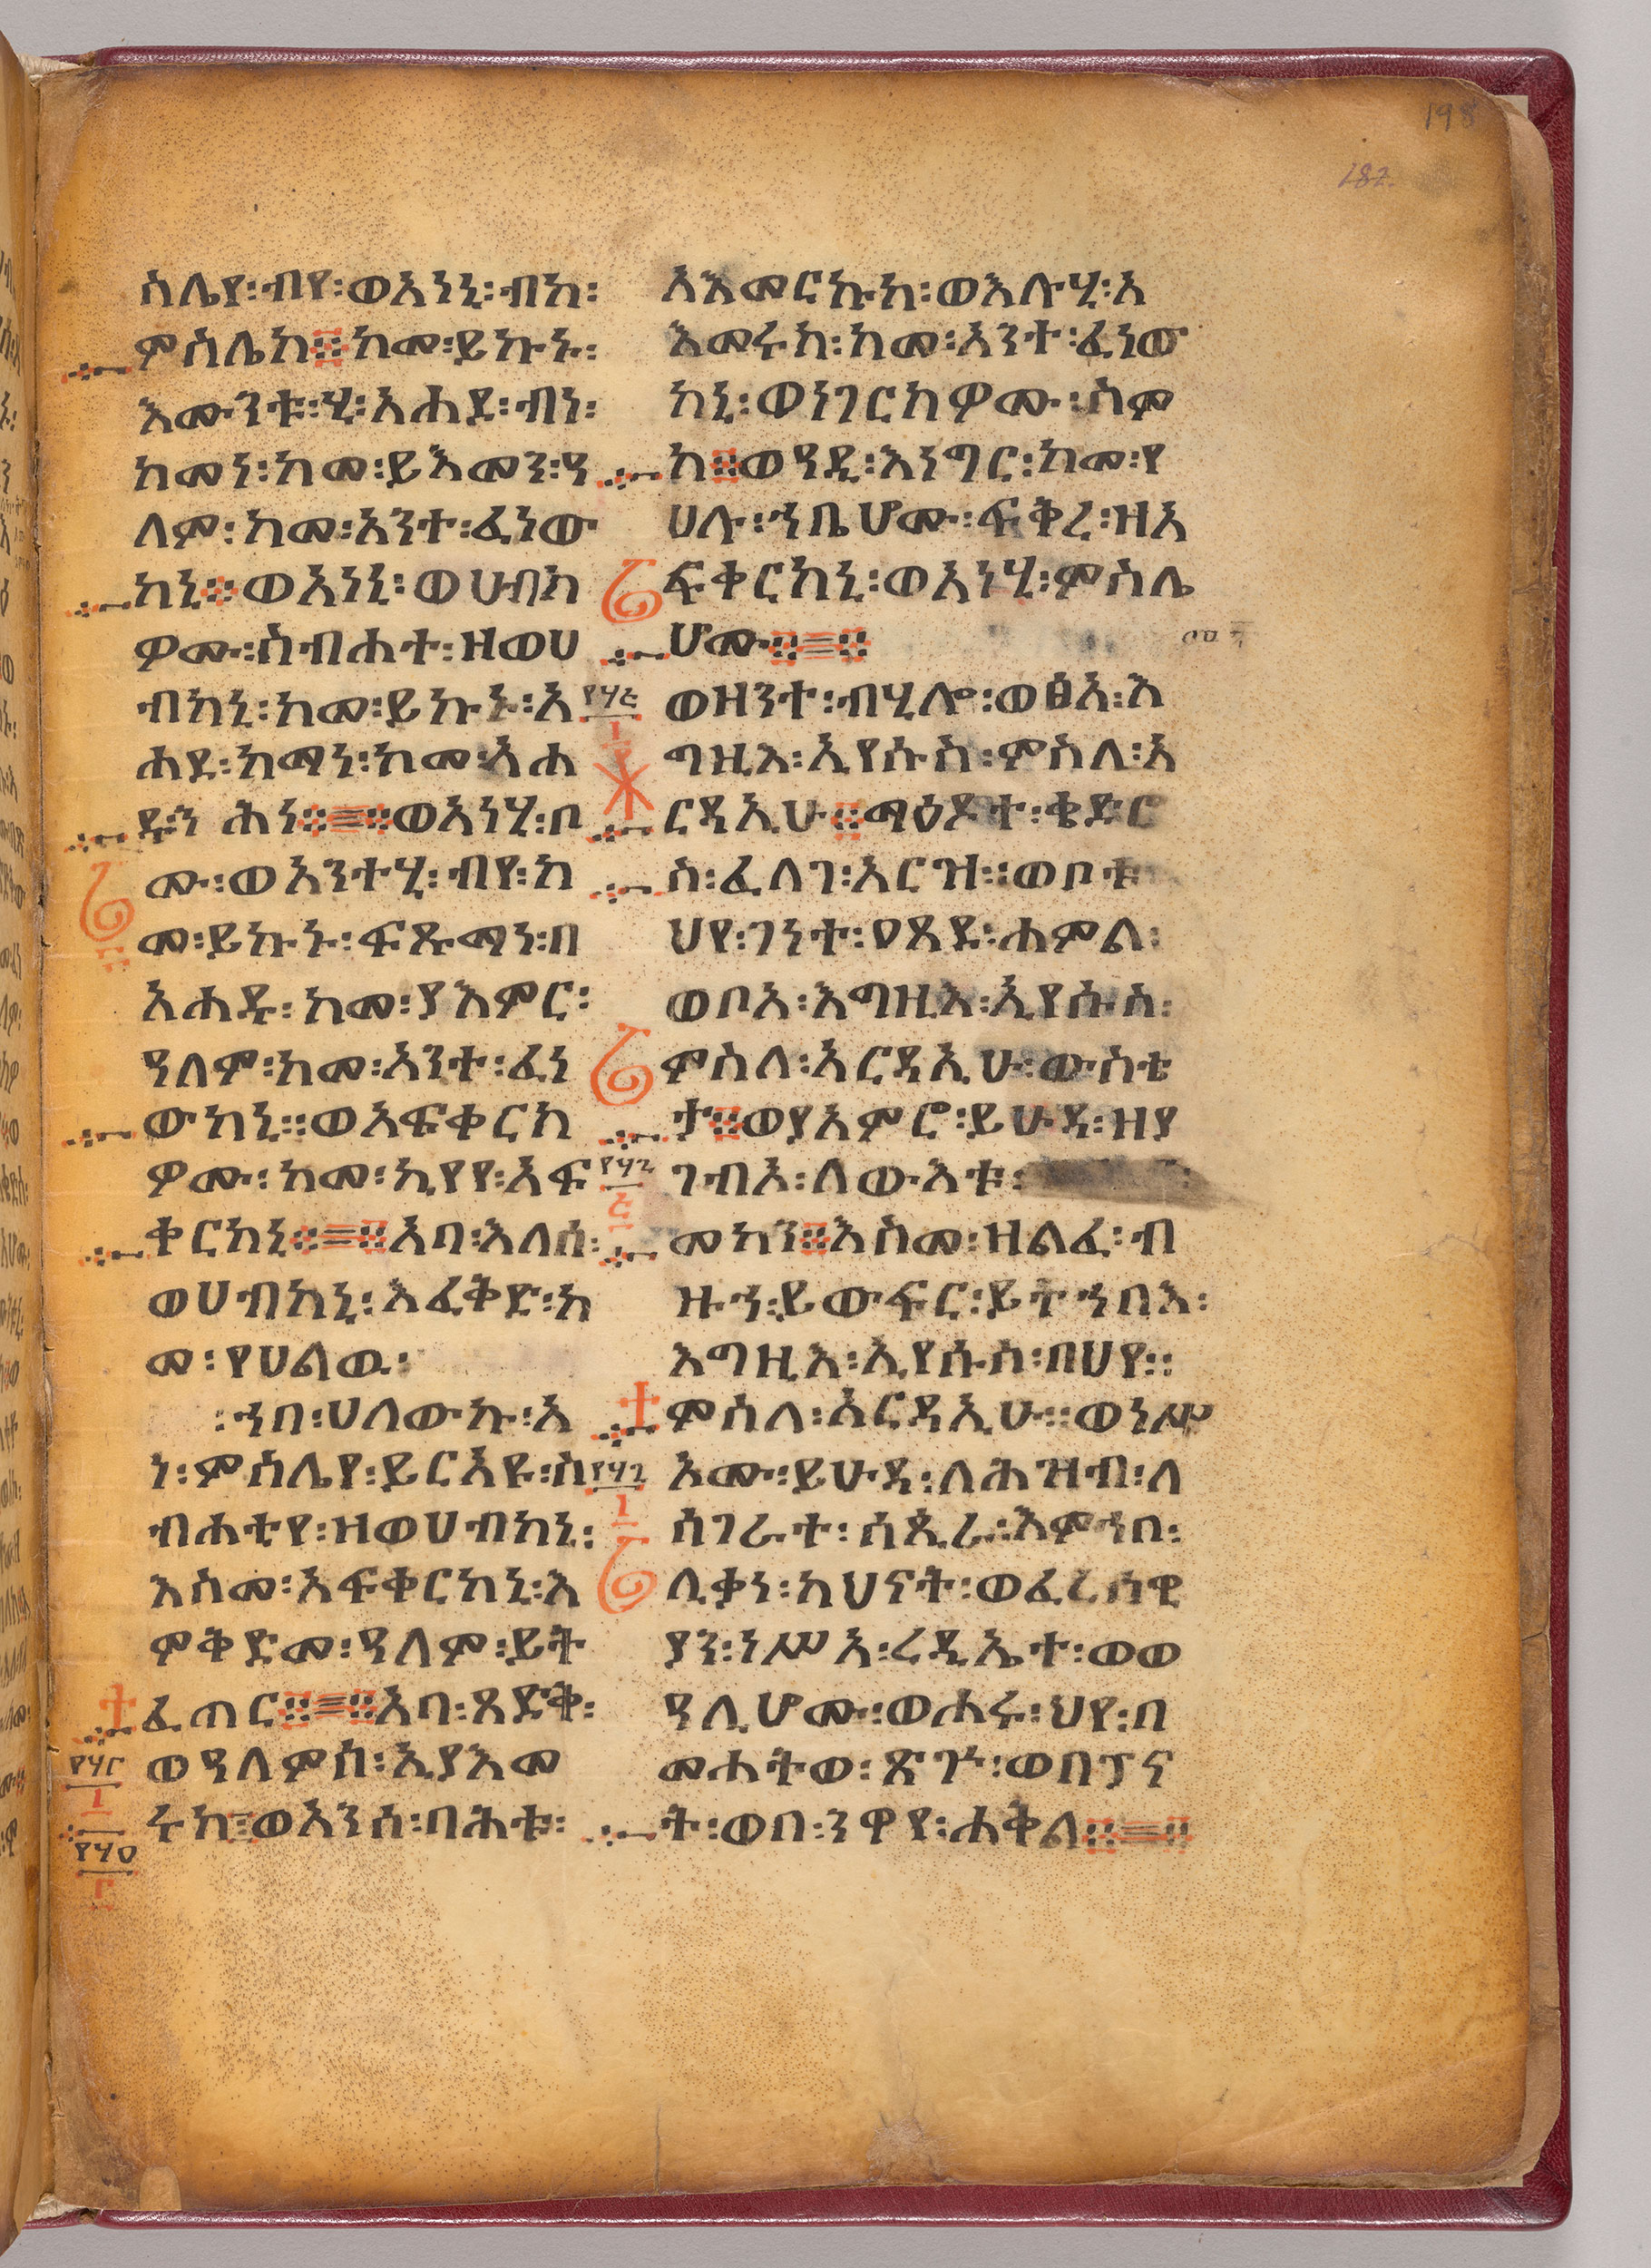 198
182
ስሌየ፡ብየ፡ወአነኒ፡ብከ፡
ምስሌከ፨ከመ፡ይኩኑ፡
እሙንቱ፡ሂ፡አሐደ፡ብነ፡
ከመነ፡ከመ፡ይእመን፡ዓ
ለም፡ከመ፡አንተ፡ፈነው
ከኒ፨ወአነኒ፡ወሀብክ
ዎሙ፡ስብሐተ፡ዘወሀ
ብከኒ፡ከመ፡ይኩኑ፡አ
ሐደ፡ከማነ፡ከመ፡አሐ
ዱ፡ን ሕነ፨፨ወአነሂ፡ቦ
ሙ፡ወአንተሂ፡ብየ፡ከ
መ፡ይኩኑ፡ፍጹማነ፡በ
አሐዱ፡ከመ፡ያእምር፡
ዓለም፡ከመ፡አንተ፡ፈነ
ውከኒ።ወአፍቀርክ
ዎሙ፡ከመ፡ኪየየ፡አፍ
ቀርከኒ፨፨አባ፡እለሰ፡
ወሀብከኒ፡እፈቅድ፡ከ
መ፡የሀልዉ፡
፡ኀበ፡ሀለውኩ፡አ
ነ፡ምስሌየ፡ይርአዩ፡ስ
ብሐቲየ፡ዘወሀብከኒ፡
እስመ፡አፍቀርከኒ፡እ
ምቅድመ፡ዓለም፡ይት
ፈጠር፨፨አባ፡ጻድቅ፡
ወዓለምሰ፡ኢያእመ
ሩከ፡ወአንሰ፡ባሕቱ፡
አእመርኩከ፡ወእሉሂ፡አ
እመሩከ፡ከመ፡አንተ፡ፈነው
ከኒ፡ወነገርክዎሙ፡ስም
ከ፨ወዓዲ፡እነግር፡ከመ፡የ
ሀሉ፡ኀቤሆሙ፡ፍቅረ፡ዘአ
ፍቀርከኒ፡ወአነሂ፡ምስሌ
ሆሙ፨፨
ወዘንተ፡ብሂሎ፡ወፅአ፡እ
ግዚእ፡ኢየሱስ፡ምስለ፡አ
ርዳኢሁ፨ማዕዶተ፡ቄድሮ
ስ፡ፈለገ፡አርዝ።ወቦቱ፡
ህየ፡ገነተ፡ዐጸደ፡ሐምል፡
ወቦአ፡እግዚእ፡ኢየሱስ፡
ምስለ፡አርዳኢሁ፡ውስቴ
ታ፨ወያአምሮ፡ይሁዳ፡ዘያ
ገብኦ፡ለውእቱ፡
መካን፨እስመ፡ዘልፈ፡ብ
ዙኀ፡ይውፍር፡ይትኀባእ፡
እግዚእ፡ኢየሱስ፡በህየ።
ምስለ፡አርዳኢሁ።ወነሥ
አሙ፡ይሁዳ፡ለሕዝብ፡ለ
ሰገራት፡ሰጲራ፡እምኀበ፡
ሊቃነ፡ካህናት፡ወፈሪሳዊ
ያን፡ነሥአ፡ረዲኤተ፡ወወ
ዓሊሆሙ።ወሐሩ፡ህየ፡በ
መሐትው፡ጽገዮ፡ወበፓና
ት፡ወበ፡ንዋየ፡ሐቅል፨፨